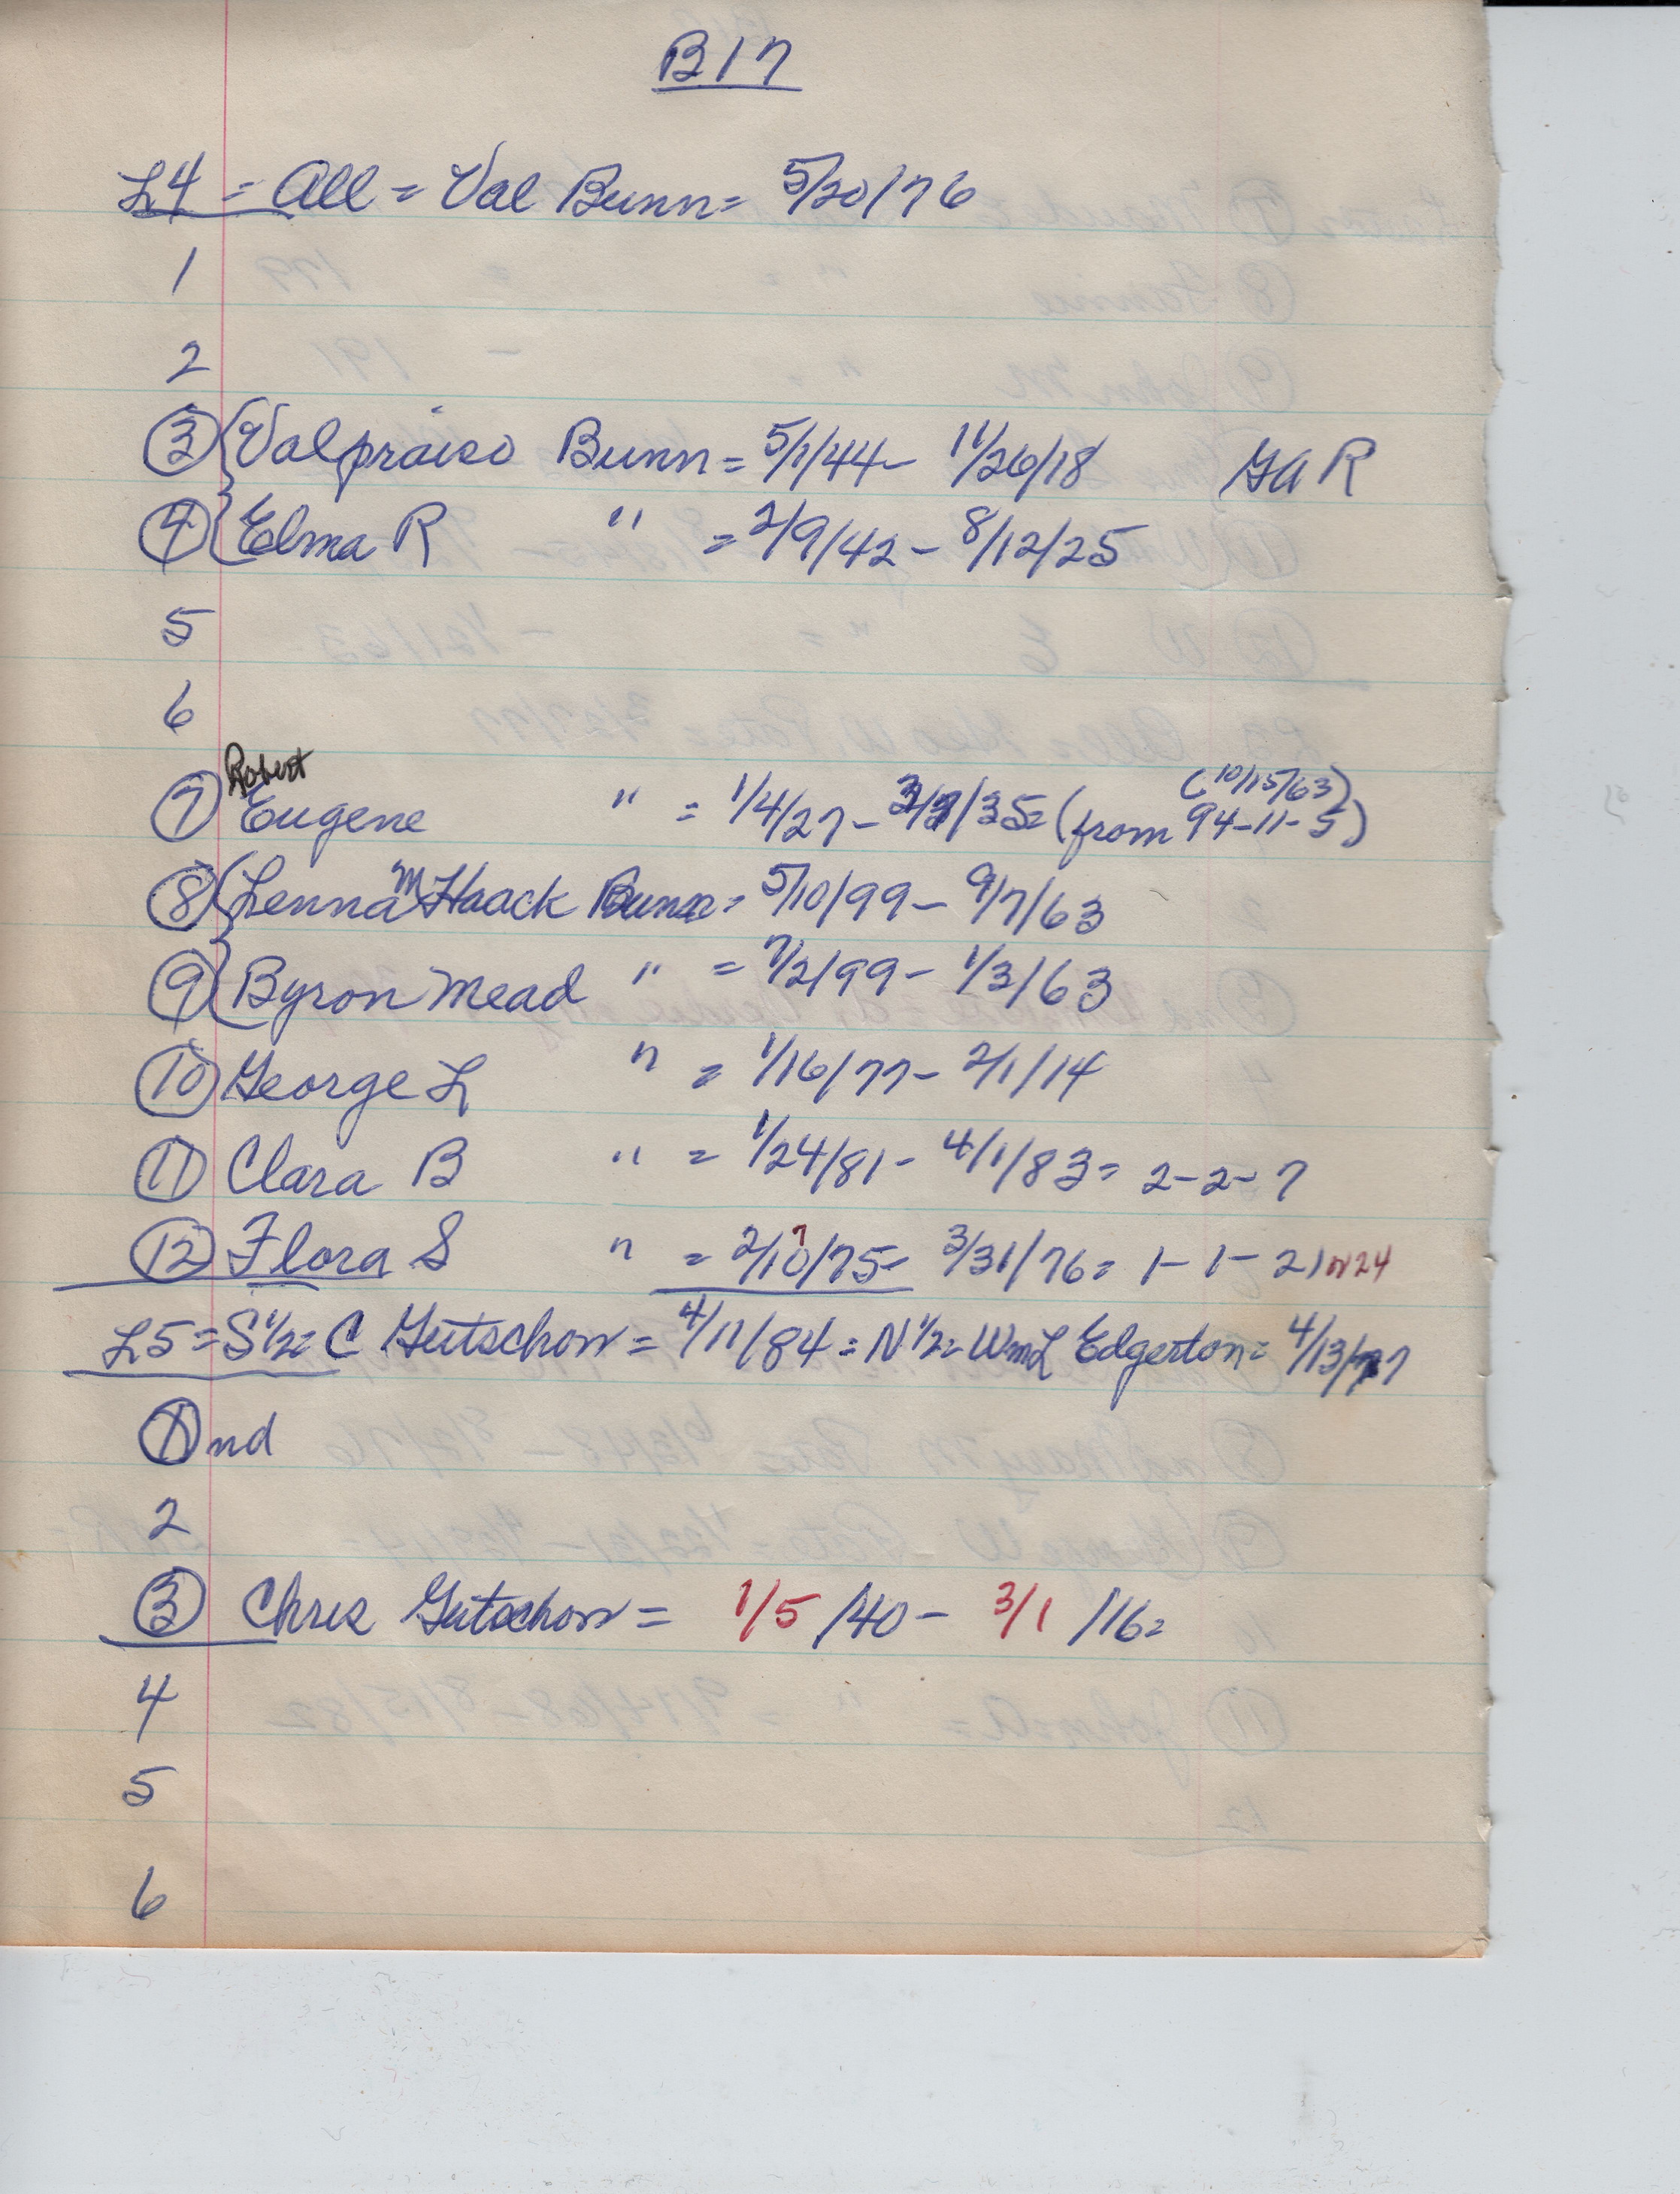 B17
L4 = All = Val Bunn = 5/20/76
1
2
3 { Valpraiso Bunn = 5/1/44 - 11/26/18 GAR
4 { Elma R " = 2/9/42 - 8/12/25
5
6
Robert (10/15/63)
7 Eugene " = 1/4/27 - /35 = (from 94-11-5)
8 { Lenna M Haack Bunn = 5/10/99 - 9/7/63
9 { Byron Mead " = 7/2/99 - 1/3/63
10 George L " = 1/16/77 - 2/1/14
11 Clara B " = 1/24/81 - 4/1/83 = 2-2-7
12 Flora S " = 2/10/75 = 3/31/76 = 1-1-21 or 24
7
L5 = S 1/2 = C Gutschow = 4/11/84 = N 1/2 = Wm L Edgerton = 4/13/77
1 nd
2
3 Chris Gutschow = 1/5/40 - 3/1/16 =
4
5
6